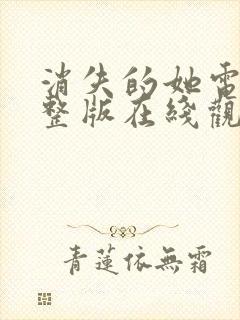 消失的她電
整版在綫觀
青蓮依無霜